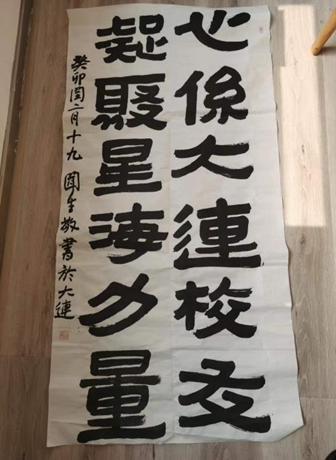 心係大連校友
凝聚星海力量
癸卯闰二月十九 国生敬書於大連